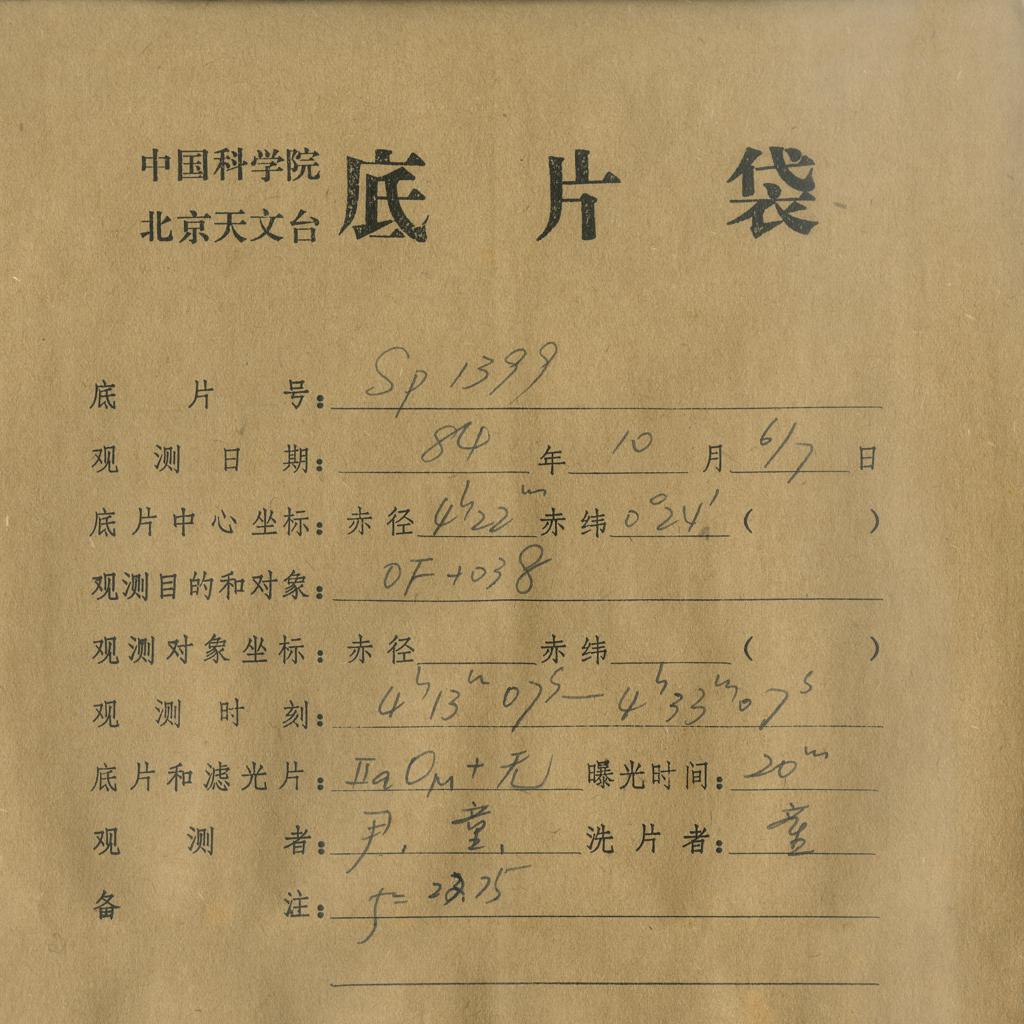 中国科学院
北京天文台
底片袋
底片号：Sp 1399
观测日期：84年10月6/7日
底片中心坐标：赤径4h22m赤纬0°24′（ ）
观测目的和对象：OF+038
观测对象坐标：赤径 赤纬 （ ）
观测时刻：4h13m07s—4h33m07s
底片和滤光片：IIaO+无 曝光时间：20m
观测者：尹、童、 洗片者：童
备注：f=23.75